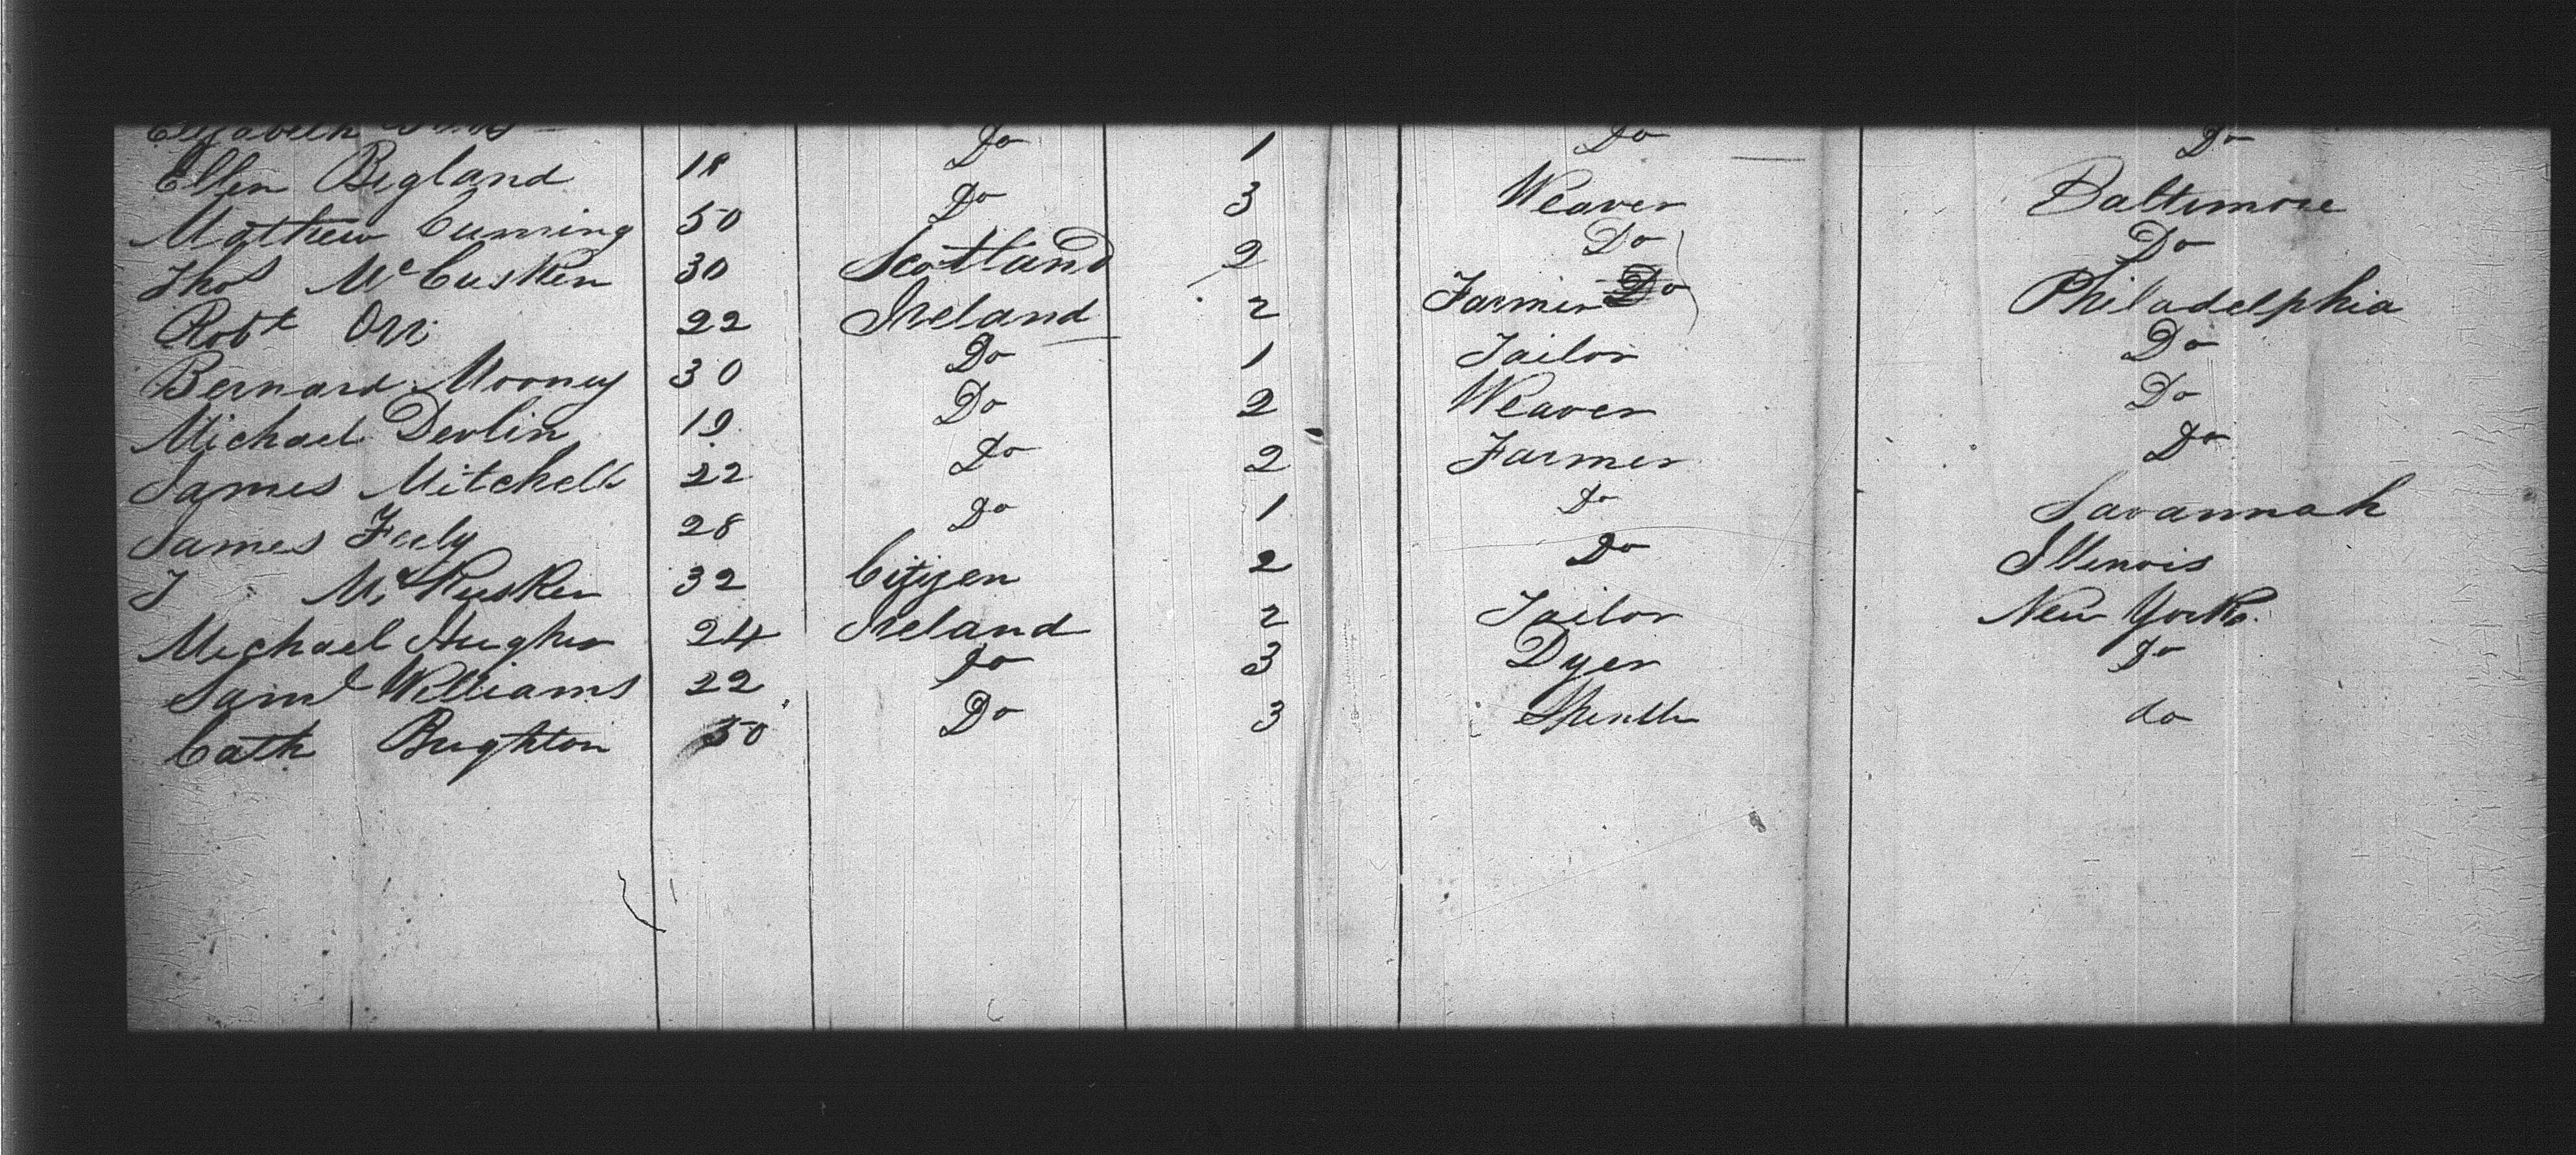 Elizabeth
Ellen Bigland 18 Do 1 Do Do
Mathew Cuming 50 Do 3 Weaver Baltimore
Thos McCusken 30 Scotland 2 Do Do
Robt Orr 22 Ireland 2 Farmer Do Philadelphia
Bernard Mooney 30 Do 1 Tailor Do
Michael Devlin 19 Do 2 Weaver Do
James Mitchell 22 Do 2 Farmer Do
James Feely 28 Do 1 Do Savannah
J McKusker 32 Citizen 2 Do Illinois
Michael Hughes 24 Ireland 2 Tailor New York
Saml Williams 22 Do 3 Dyer Do
Cath Brighton 50 Do 3 do